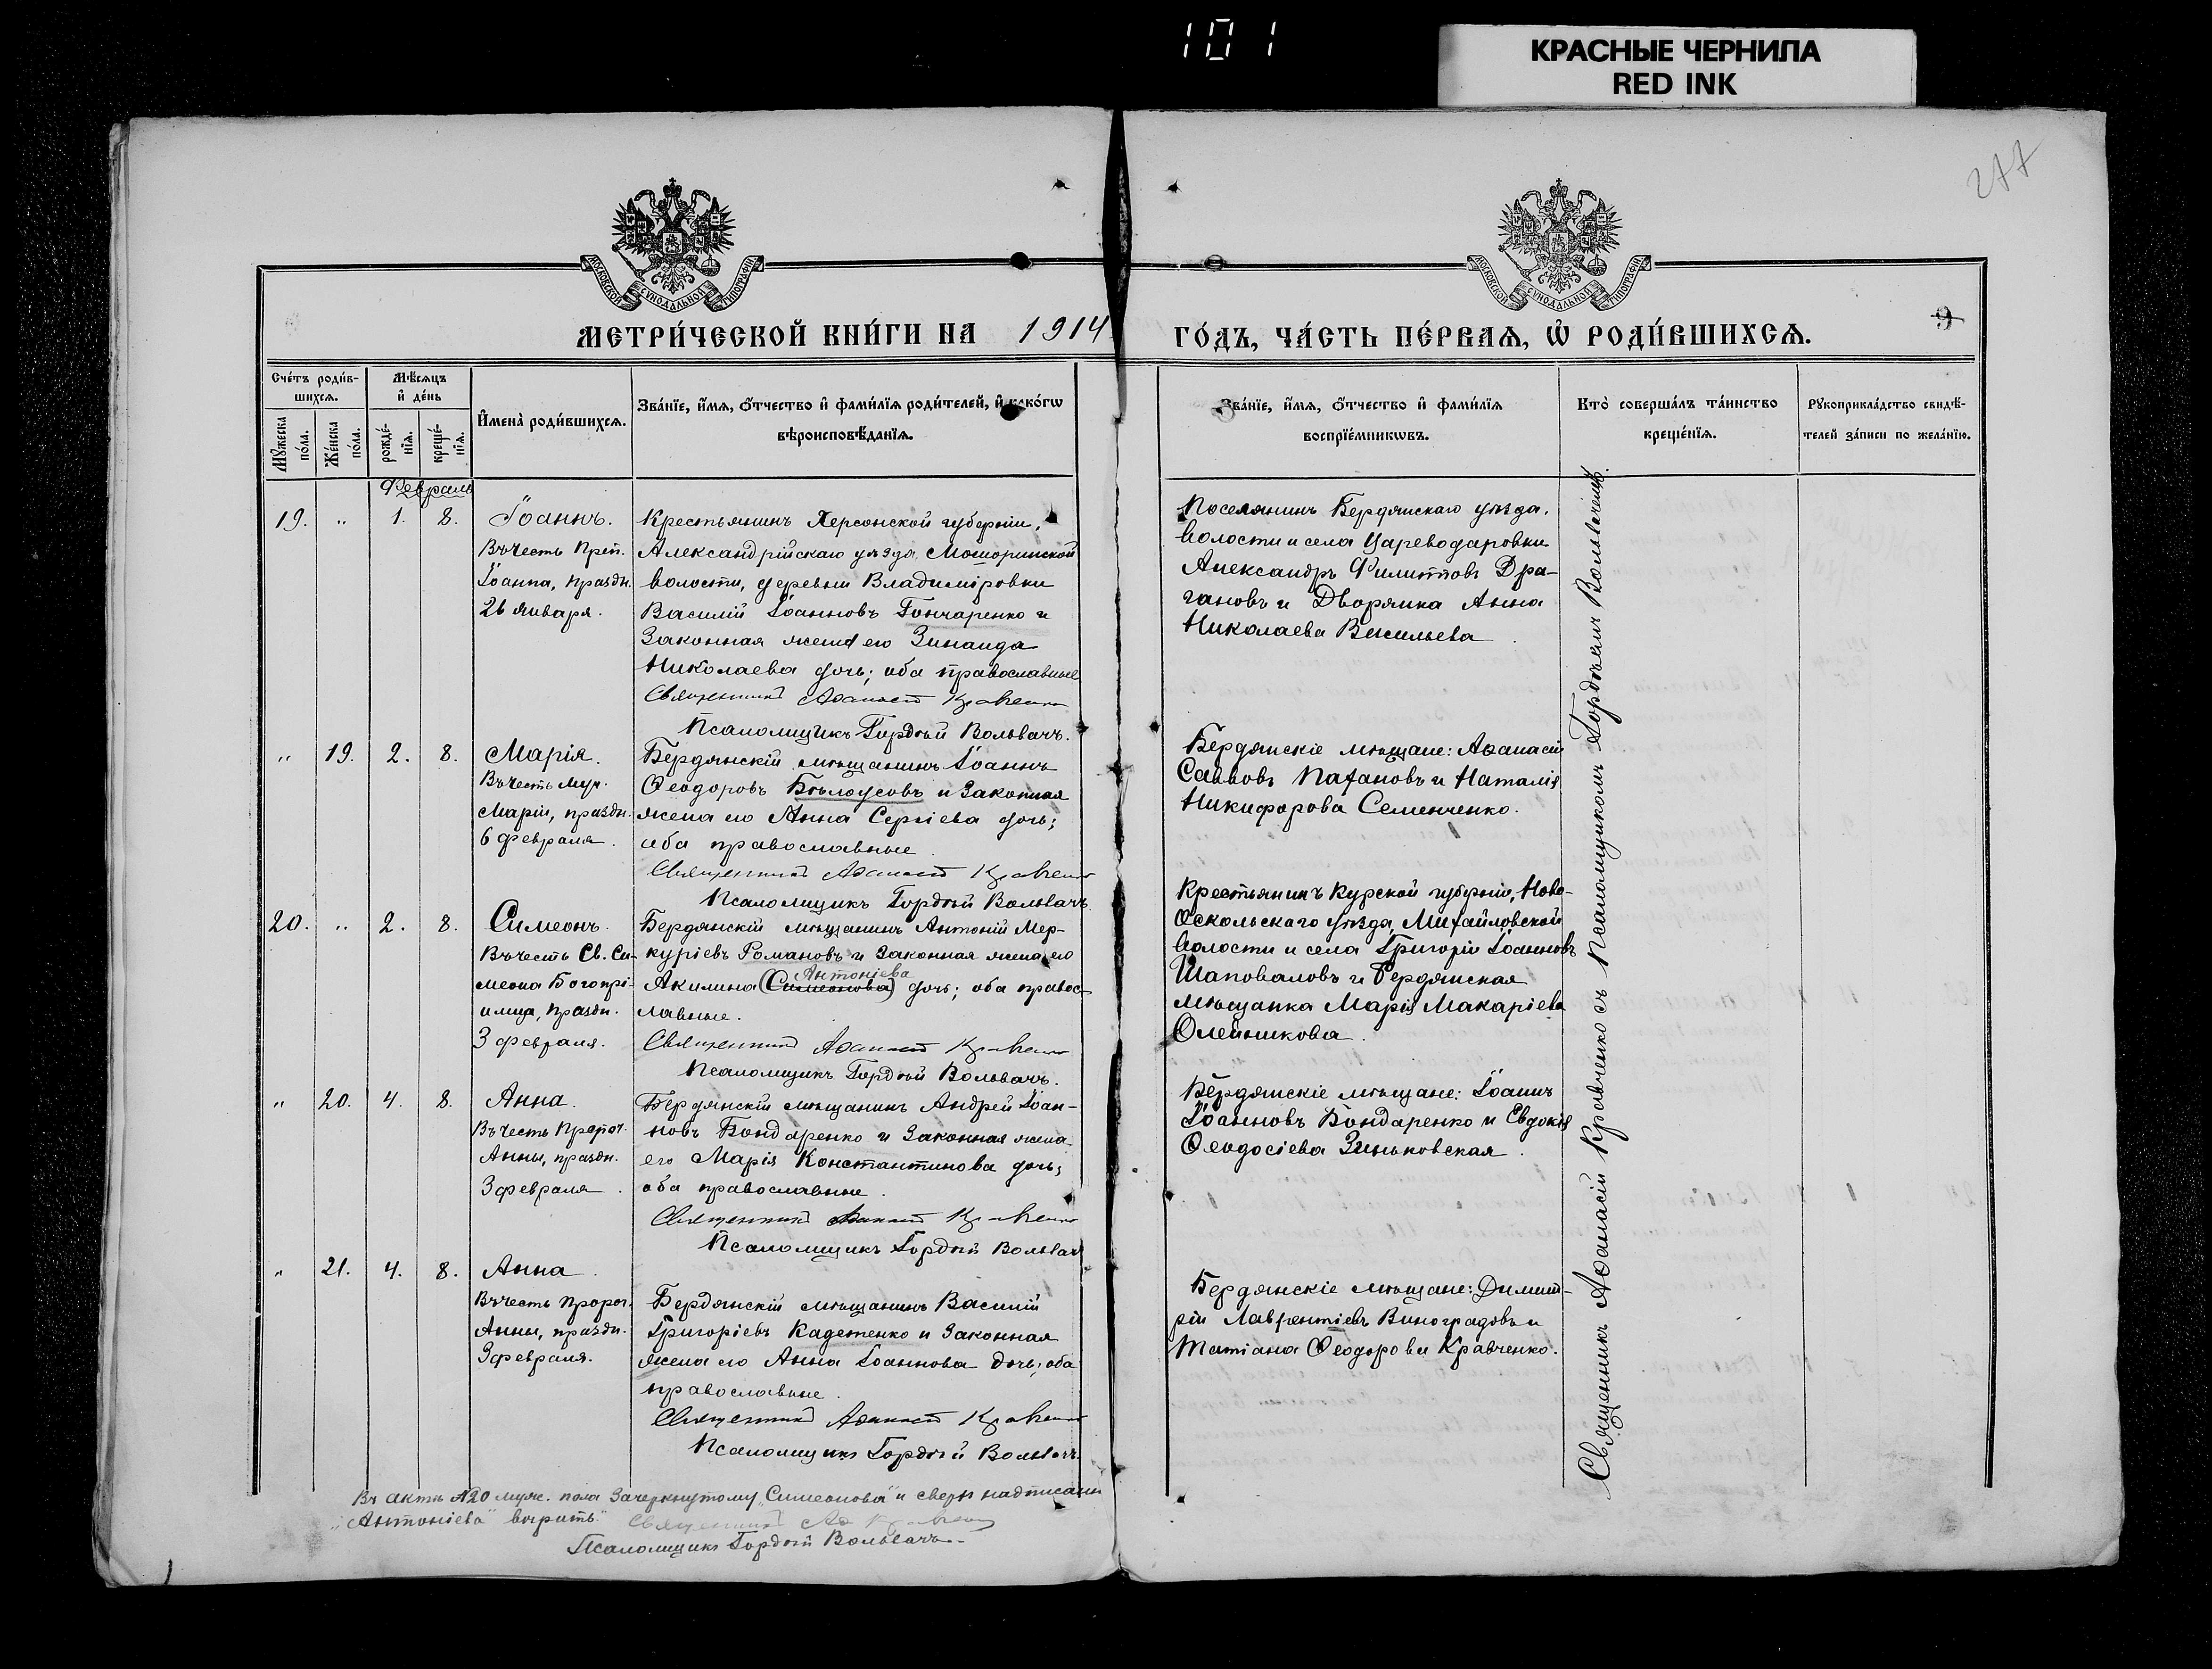 101
КРАСНЫЕ ЧЕРНИЛА
RED INK
277
МОСКОВСКОЙ СѴНОДАЛЬНОЙ ТИПОГРАФІИ
МОСКОВСКОЙ СѴНОДАЛЬНОЙ ТИПОГРАФІИ
МЕТРИ́ЧЕСКОЙ КНИ́ГИ НА 1914
ГО́ДЪ, ЧА́СТЬ ПЕ́РВАѦ, Ѡ҆ РОДИ́ВШИХСѦ.
9
Сче́тъ роди́в-
шихсѧ.
Мѣ́сѧцъ
и҆ де́нь
Мꙋ́жеска по́ла.
Же́нска по́ла.
рожде́-нїѧ.
креще́-нїѧ.
И҆мена̀ роди́вшихсѧ.
Зва́нїе, и҆́мѧ, ѻ҆́тчество и҆ фами́лїѧ роди́телей, и҆ како́гѡ
вѣроисповѣ́данїѧ.
Зва́нїе, и҆́мѧ, ѻ҆́тчество и҆ фами́лїѧ
воспрїе́мникѡвъ.
Кто̀ соверша́лъ та́инство
креще́нїѧ.
Рꙋкоприкла́дство свидѣ́-
телей за́писи по жела́нїю.
Февраль
19. „ 1. 8. Іоаннъ.
Въ честь Преп.
Іоанна, праздн.
26 января.
Крестьянинъ Херсонской губерніи,
Александрійскаго уѣзда, Мошоринской
волости, деревни Владиміровки
Василій Іоанновъ Гончаренко и
Законная жена его Зинаида
Николаева дочь; оба православные
Священникъ Аѳанасій Кравченко
Псаломщикъ Гордѣй Вольвачъ.
Поселянинъ Бердянскаго уѣзда,
волости и села Цареводаровки
Александръ Филипповъ Дра-
гановъ и Дворянка Анна
Николаева Васильева
„ 19. 2. 8. Марія.
Въ честь Муч.
Маріи, праздн.
6 февраля.
Бердянскій мѣщанинъ Іоаннъ
Ѳеодоровъ Бѣлоусовъ и Законная
жена его Анна Сергіева дочь;
оба православные
Священникъ Аѳанасій Кравченко
Псаломщикъ Гордѣй Вольвачъ
Бердянскіе мѣщане: Аѳанасій
Савовъ Пахановъ и Наталія
Никифорова Семенченко.
20. „ 2. 8. Симеонъ.
Въ честь Св. Си-
меона Богопрі-
имца, праздн.
3 февраля.
Бердянскій мѣщанинъ Антоній Мер-
куріевъ Романовъ и Законная жена его
Антоніева
Акилина (Симеонова) дочь; оба правос-
лавные.
Священникъ Аѳанасій Кравченко
Псаломщикъ Гордѣй Вольвачъ.
Крестьянинъ Курской губерніи, Ново-
Оскольскаго уѣзда, Михайловской
волости и села Григорій Іоанновъ
Шаповаловъ и Бердянская
мѣщанка Марія Макаріева
Олейникова.
„ 20. 4. 8. Анна.
Въ честь Пророч.
Анны, праздн.
3 февраля.
Бердянскій мѣщанинъ Андрей Іоан-
новъ Бондаренко и Законная жена
его Марія Константинова дочь;
оба православные.
Священникъ Аѳанасій Кравченко
Псаломщикъ Гордѣй Вольвачъ
Бердянскіе мѣщане: Іоаннъ
Іоанновъ Бондаренко и Евдокія
Ѳеодосіева Зиньковская.
„ 21. 4. 8. Анна.
Въ честь Пророч.
Анны, праздн.
3 февраля.
Бердянскій мѣщанинъ Василій
Григоріевъ Кадетенко и Законная
жена его Анна Іоаннова дочь; оба
православные.
Священникъ Аѳанасій Кравченко
Псаломщикъ Гордѣй Вольвачъ.
Бердянскіе мѣщане: Димит-
рій Лаврентіевъ Виноградовъ и
Татіана Ѳеодорова Кравченко.
Священникъ Аѳанасій Кравченко съ Псаломщикомъ Гордѣемъ Вольвачемъ.
Въ актѣ №20 муж. пола Зачеркнутому „Симеонова" и сверх надписанн
„Антоніева" вѣрить. Священникъ Аѳ Кравченко
Псаломщикъ Гордѣй Вольвачъ.